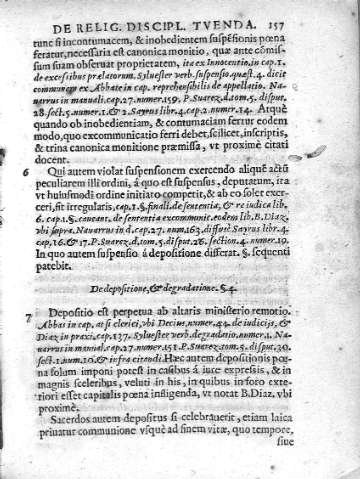 DE RELIG. DISCIPL. TVENDA. 157
tunc si incontumacem, & inobedientem suspensionis pœna
feratur, necessaria est canonica monitio, quæ ante cõmis-
sum suam obseruat proprietatem, ita ex Innocentio, in cap. 1.
de excessibus prælatorum. Syluester verb. suspensio. quæst. 4. dicit
communem ex Abbate in cap. reprehensibilis de appellatio. Na-
uarrus in manuali. cap. 27. numer. 159. P. Suarez. d. tom. 5. disput.
28. sect. 5. numer. 1. & 2. Sayrus libr. 4. cap. 2. numer. 14. Atquè
quando ob inobedientiam, & contumaciam fertur eodem
modo, quo excommunicatio ferri debet, scilicet, inscriptis,
& trina canonica monitione præmissa, vt proximè citati
docent.
6 Qui autem violat suspensionem exercendo aliquẽ actũ
peculiarem illi ordini, á quo est suspensus, deputatum, ita
vt huiusmodi ordine initiato competit, & ab eo solet exer-
ceri, fit irregularis, cap. 1. §. finali. de sententia, & re iudica lib.
6. cap. 1. §. caueant. de sententia excommunic. eodem lib. B. Diaz.
vbi supra. Nauarrus in d. cap. 27. num. 163. diffusè Sayrus libr. 4.
cap. 16. & 17. P. Suarez. d. tom. 5. disput. 26. section. 4. numer. 19.
In quo autem suspensio á depositione differat. §. sequenti
patebit.
De depositione, & degradatione. §. 4.
7 Depositio est perpetua ab altaris ministerio remotio.
Abbas in cap. at si clerici, vbi Decius, numer. 44. de iudicijs, &
Diaz in praxi, cap. 137. Syluester verb. degradatio. numer. 1. Na-
uarrus in manual. cap. 27. numer. 151. P. Suarez. tom. 5. disput. 30.
sect. 1. num. 10. & infra citandi. Hæc autem depositionis pœ-
na solum imponi potest in casibus á iure expressis, & in
magnis sceleribus, veluti in his, in quibus in foro exte-
riori esset capitalis pœna infligenda, vt notat B. Diaz. vbi
proximè.
Sacerdos autem depositus si celebrauerit, etiam laica
priuatur communione vsquè ad finem vitæ, quo tempore,
siue